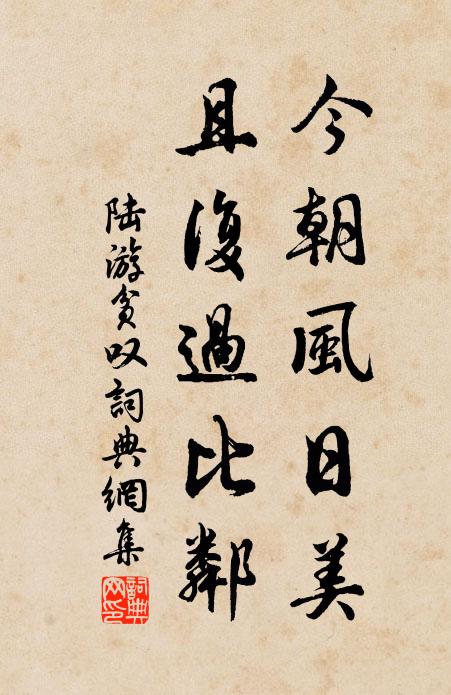 今朝風日美
且復過比鄰
陆游贫叹詞典網集
詞典網印